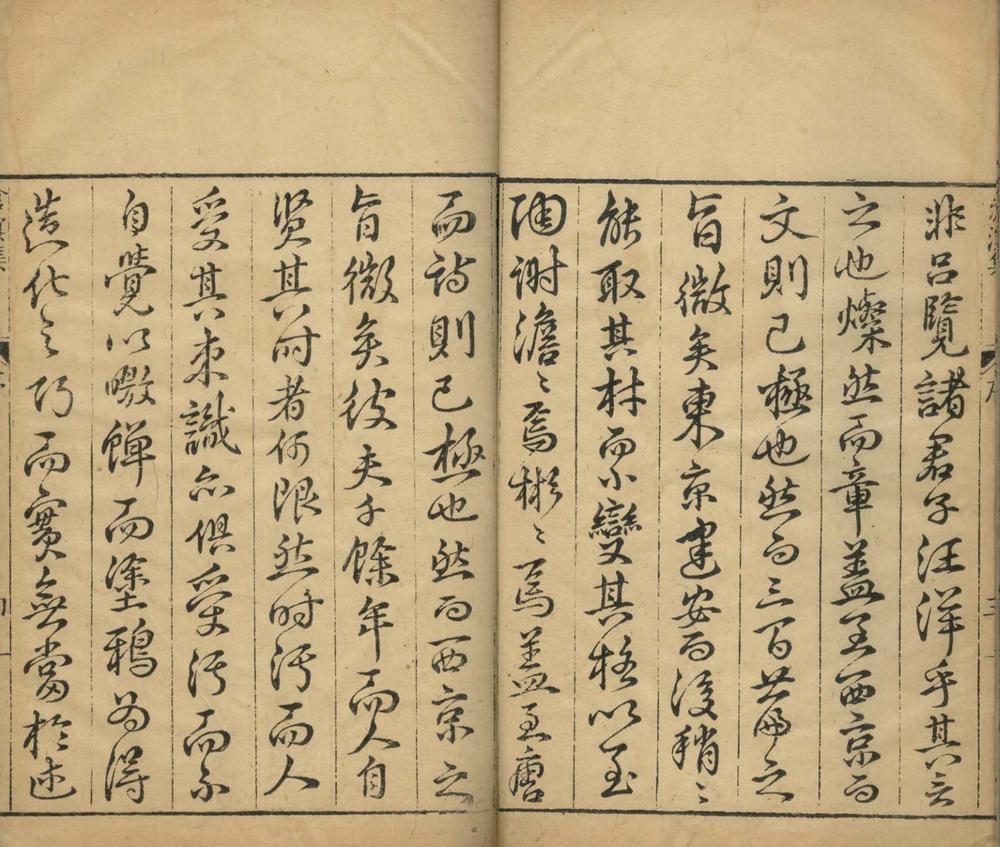 非呂覽諸君子汪洋乎其言
之也燦然而章蓋至西京而
文則已極也然而三百篇之
旨微矣東京建安而後稍〻
能取其材而小變其格以至
陶謝澹〻焉彬〻焉蓋至唐
而詩則已極也然而西京之
旨微矣彼夫千餘年而人自
賢其時者何限然時污而人
受其束識亦俱受污而不
自覺以噭蟬而塗鴉為得
造化之巧而實無當於述